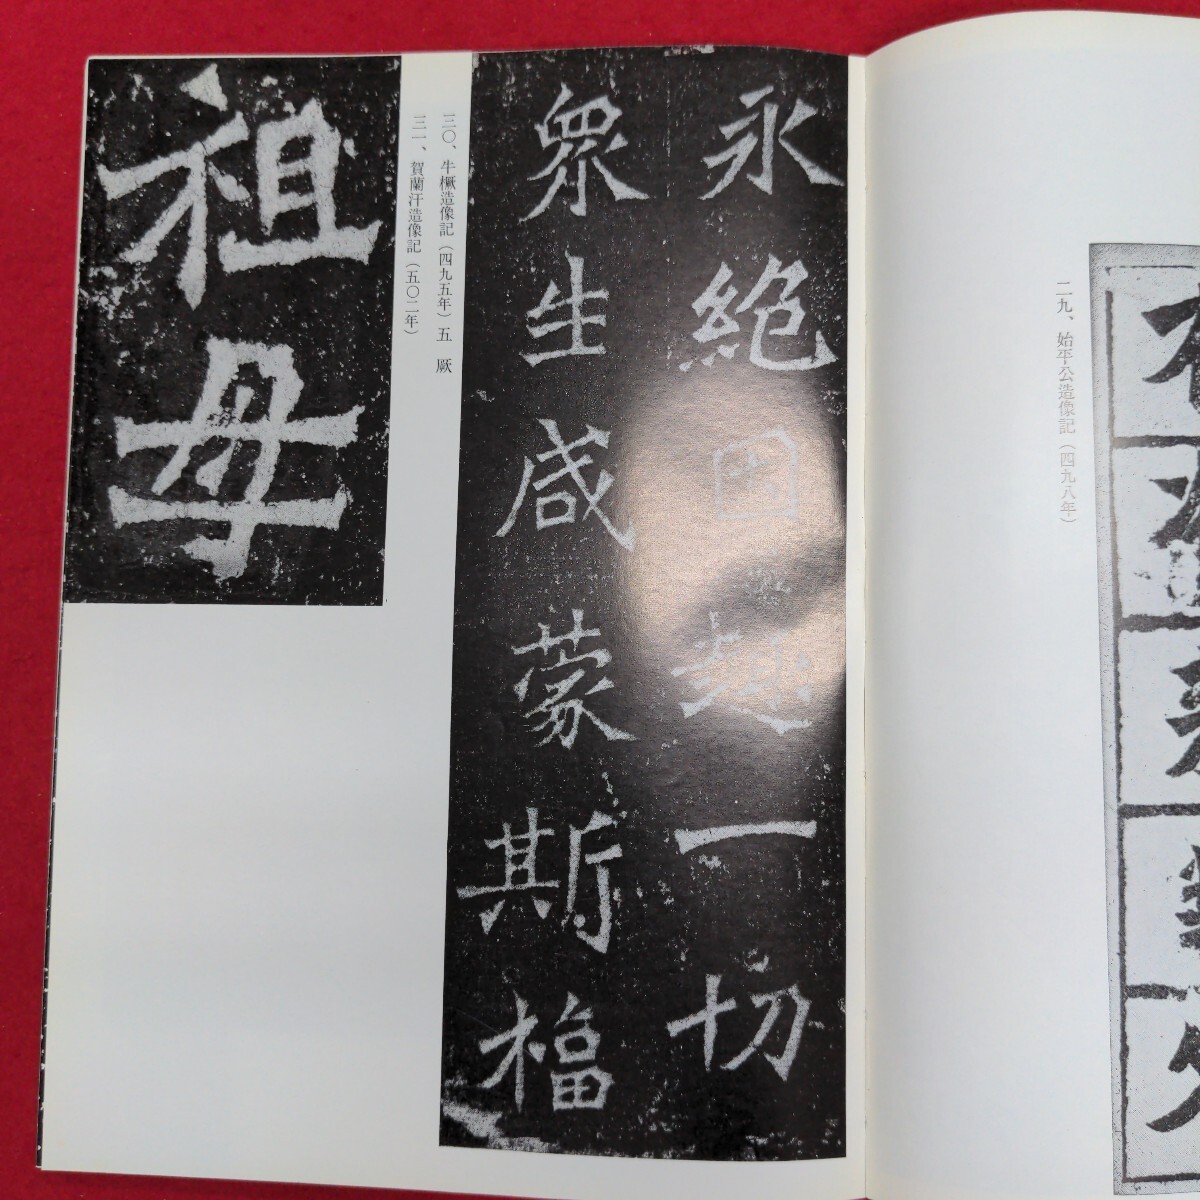 二九、始平公造像記(四九八年)
永絶因趣一切
衆生咸蒙斯福
三〇、牛橛造像記(四九五年)五 厥
三一、賀蘭汗造像記(五〇二年)
祖母